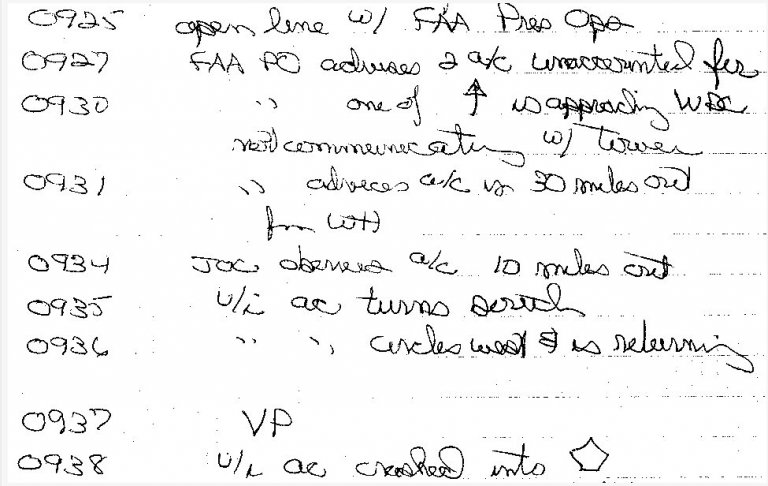 0925 open line w/ FAA Pres Ops
0927 FAA PO advises 2 a/c unaccounted for
0930 " one of ↑ is approaching WDC
not communicating w/ Tower
0931 " advices a/c is 30 miles out
from WH
0934 JOC observes a/c 10 miles out
0935 u/i ac turns south
0936 " " circles west & is returning
0937 VP
0938 u/i ac crashed into